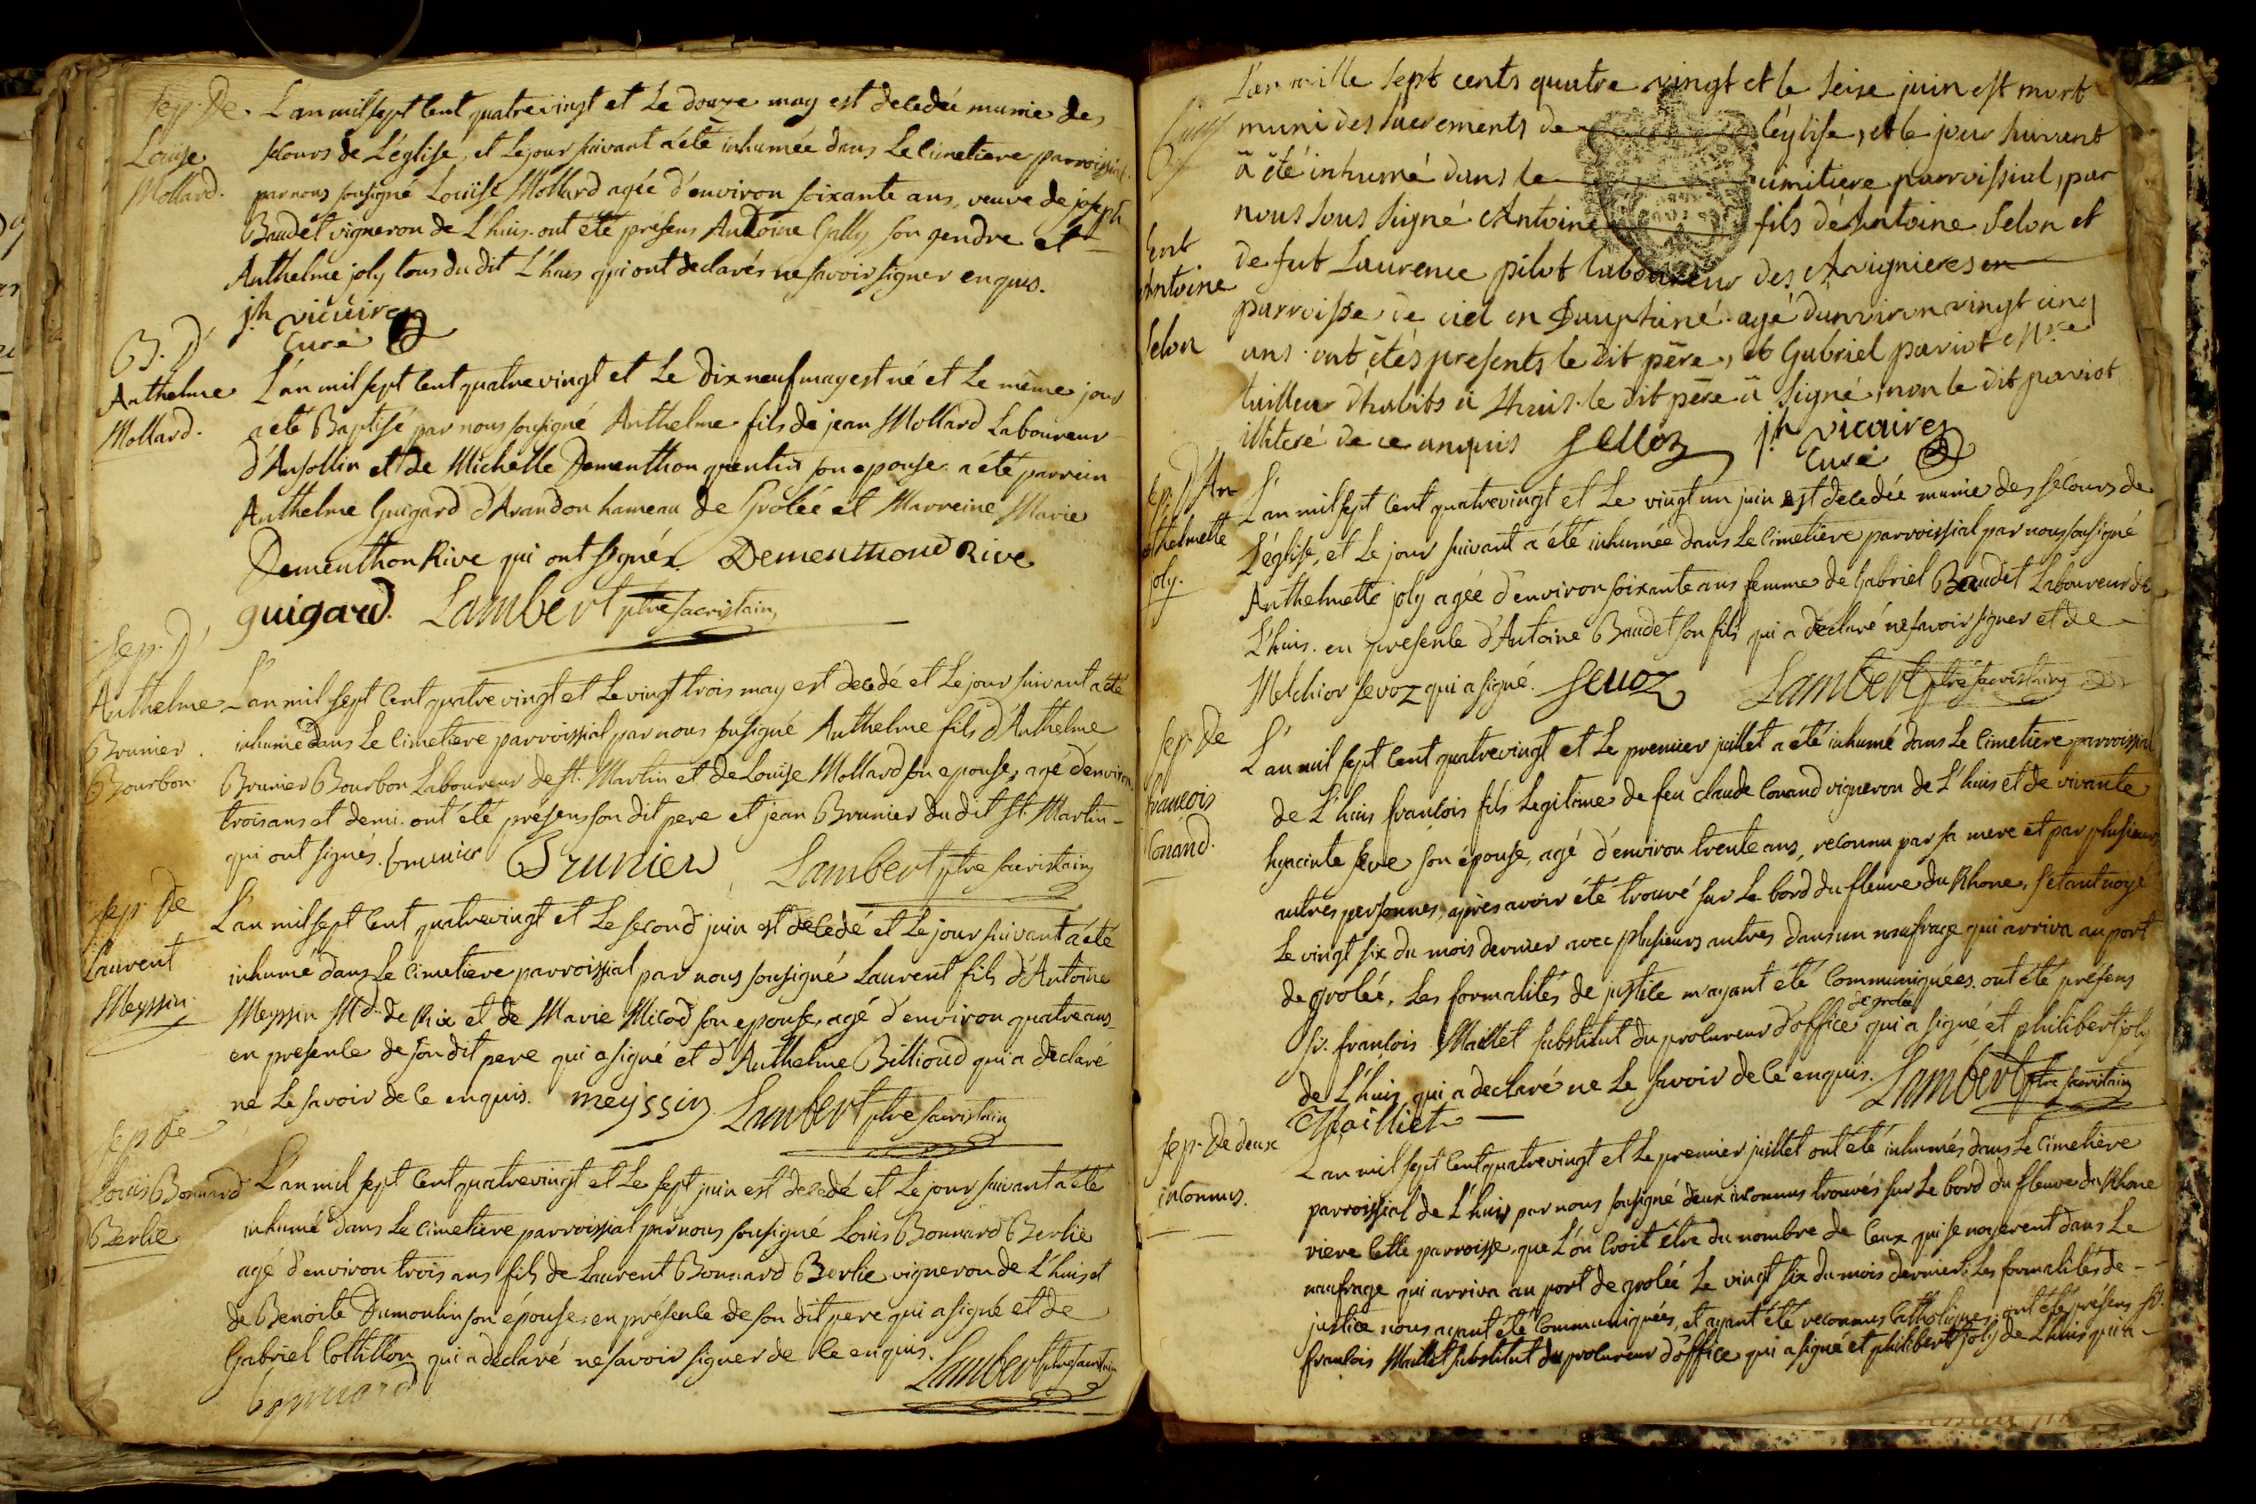 Sep. De
Louise
Mollard.
L'an mil sept Cent quatrevingt et Le douze may est decedée munie des
secours de L'église, et Le jour suivant a été inhumée dans Le Cimetiere parroissial
par nous sousigné Louise Mollard agée d'environ soixante ans, veuve de joseph
Baudet vigneron de L'huis. ont été presens Antoine Gally son gendre et
Anthelme joly tous du dit L'huis qui ont declarés ne savoir signer enquis.
jh vicaire
Curé
B. D'
Anthelme
Mollard.
L'an mil sept Cent quatrevingt et Le dix neuf may est né et Le même jour
a été Baptisé par nous sousigné Anthelme fils de jean Mollard Laboureur
d'Ansollin et de Michelle Dementhon quentin son epouse. a été parrein
Anthelme Guigard d'Arandon hameau de Grolée et Marreine Marie
Dementhon Rive qui ont signés. Dementhond Rive
guigard. Lambert ptre sacristain
Sep. D'
Anthelme
Brunier
Bourbon
L'an mil sept Cent quatre vingt et Le vingt trois may est decedé et Le jour suivant a été
inhumé dans Le Cimetiere parroissial par nous sousigné Anthelme fils d'Anthelme
Brunier Bourbon Laboureur de St. Martin et de Louise Mollard son epouse, agé d'environ
trois ans et demi. ont été presens son dit pere et jean Brunier du dit St. Martin
qui ont signés. brunier Brunier Lambert ptre sacristain
Sep. De
Laurent
Meyssin
L'an mil sept Cent quatrevingt et Le second juin est decedé et Le jour suivant a été
inhumé dans Le Cimetiere parroissial par nous sousigné Laurent fils d'Antoine
Meyssin Md. de Rix et de Marie Micod son epouse, agé d'environ quatre ans
en presence de son dit pere qui a signé et d'Anthelme Billioud qui a declaré
ne Le savoir de Ce enquis. meyssin Lambert ptre sacristain
Sep de
Louis Bonnard
Berlie
L'an mil sept Cent quatrevingt et Le sept juin est decedé et Le jour suivant a été
inhumé dans Le Cimetiere parroissial par nous sousigné Louis Bonnard Berlie
agé d'environ trois ans fils de Laurent Bonnard Berlie vigneron de L'huis et
de Benoite Dumoulin son épouse. en présence de son dit pere qui a signé et de
Gabriel Cottillon qui a declaré ne savoir signer de Ce enquis.
bonnard Lambert ptre sacristain
Ent
Antoine
Selon
L'an mille sept cents quatre vingt et le seize juin est mort
muni des sacrements de l'église, et le jour suivant
à été inhumé dans le cimitiere parroissial, par
nous sous signé Antoine fils de Antoine Selon et
de fut Laurence pilot laboureur des Avignieres en
parroisse de ciel en Dauphiné. agé d'anviron vingt cinq
ans. ont étés presents le dit père, et Gabriel pariot
tailleur d'habits à Lhuis. le dit père à signé, non le dit pariot
illiteré de ce anquis Sellon jh vicaire
Curé
Sep. D'An
thelmette
joly.
L'an mil sept Cent quatrevingt et Le vingt un juin est decedée munie des secours de
L'église, et Le jour suivant a été inhumée dans Le Cimetière parroissial par nous sousigné
Anthelmette joly agée d'environ soixante ans femme de Gabriel Baudet Laboureur de
L'huis. en presence d'Antoine Baudet son fils qui a declaré ne savoir signer et de
Melchior sevoz qui a signé. sevoz Lambert ptre sacristain
Sep. De
françois
Conand.
L'an mil sept Cent quatrevingt et Le premier juillet a été inhumé dans Le Cimetiere parroissial
de L'huis françois fils Legitime de feu claude Conand vigneron de L'huis et de vivante
hyacinte seve son épouse, agé d'environ trente ans, reconnu par sa mere et par plusieurs
autres personnes, après avoir été trouvé sur Le bord du fleuve du Rhone, s'étant noyé
Le vingt six du mois dernier avec plusieurs autres dans un naufrage qui arriva au port
de grolée. Les formalités de justice m'ayant été Communiquées. ont été présens
Sr. françois Maillet substitut du procureur d'office de grolée qui a signé et philibert joly
de L'huis qui a declaré ne Le savoir de Ce enquis. Lambert ptre sacristain
Mailliet
Sep. De deux
inconnus.
L'an mil sept Cent quatrevingt et Le premier juillet ont été inhumés dans Le Cimetière
parroissial de L'huis par nous sousigné deux inconnus trouvés sur Le bord du fleuve du Rhone
riere Cette parroisse, que L'on Croit être du nombre de Ceux qui se noyerent dans Le
naufrage qui arriva au port de grolée Le vingt six du mois dernier. Les formalités de
justice nous ayant été Communiquées, et ayant été reconnus Catholiques. ont été présens Sr.
françois Maillet substitut du procureur d'office qui a signé et philibert joly de L'huis qui a